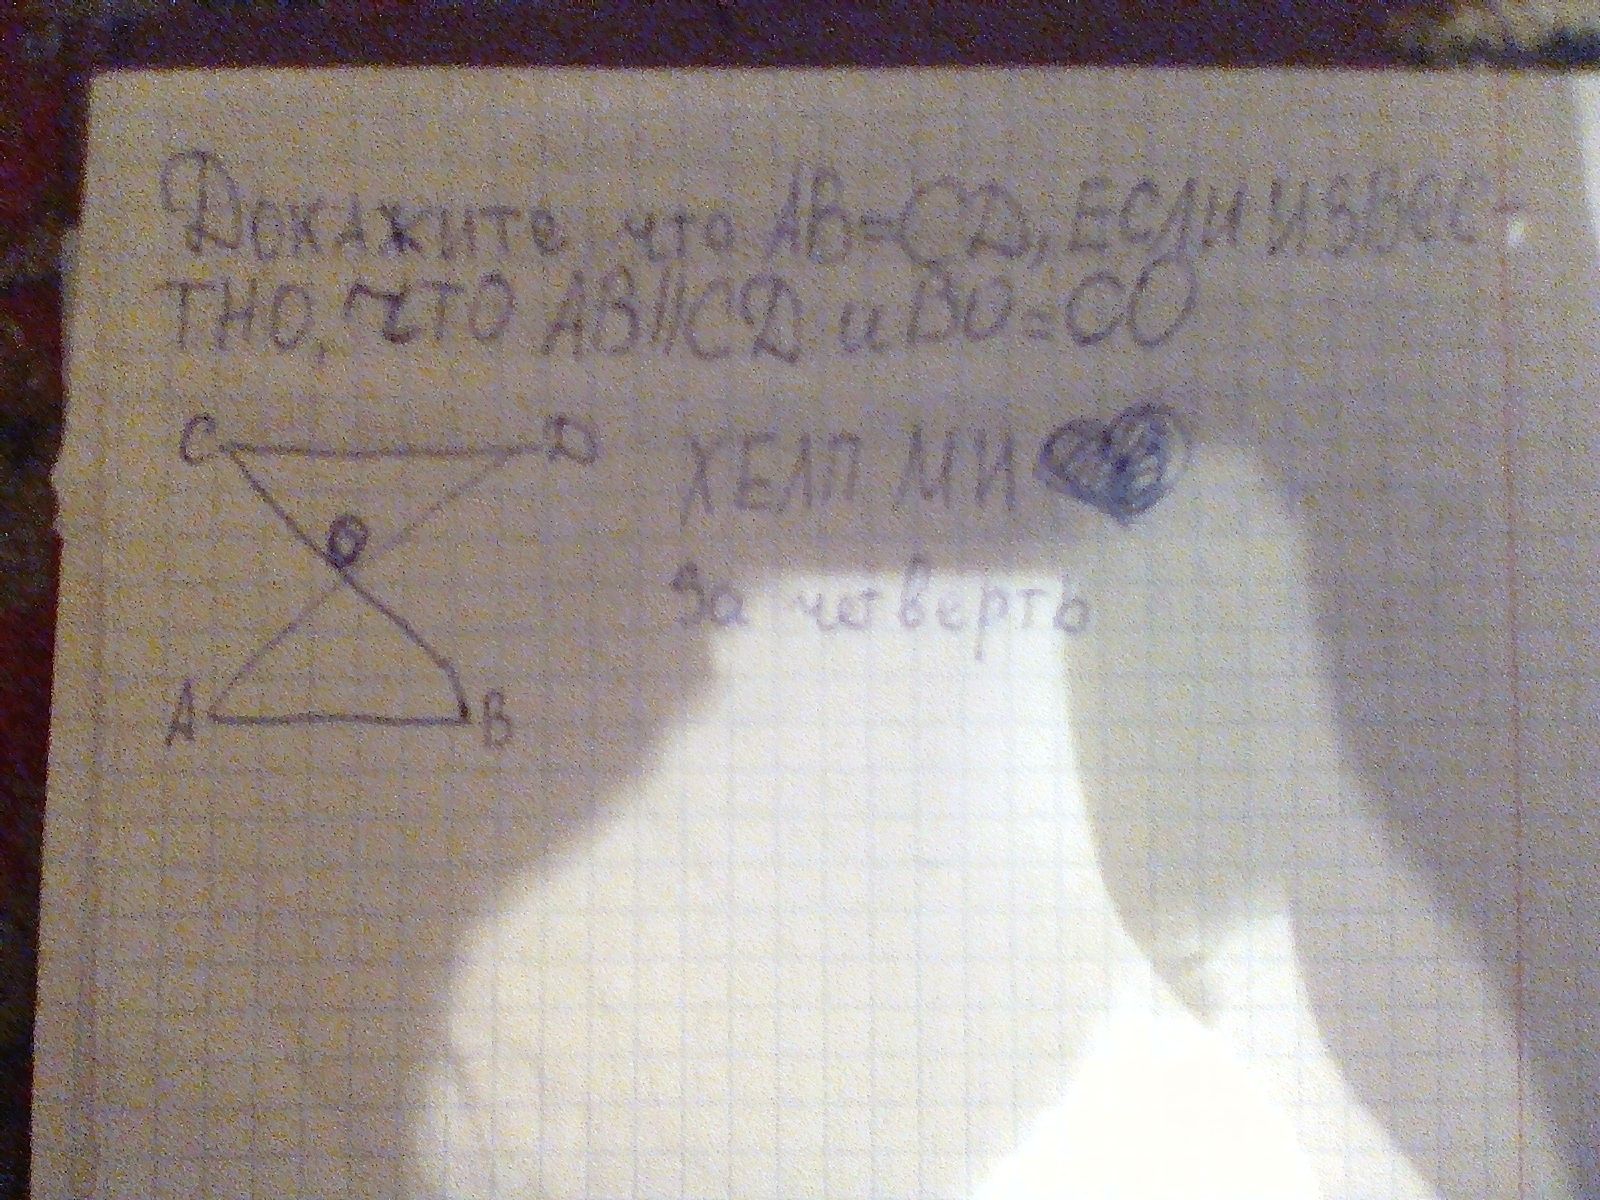 Докажите, что AB=CD, если извес-
тно, что AB||CD и BO=CO
C D ХЕЛП МИ
O
За четверть
A B